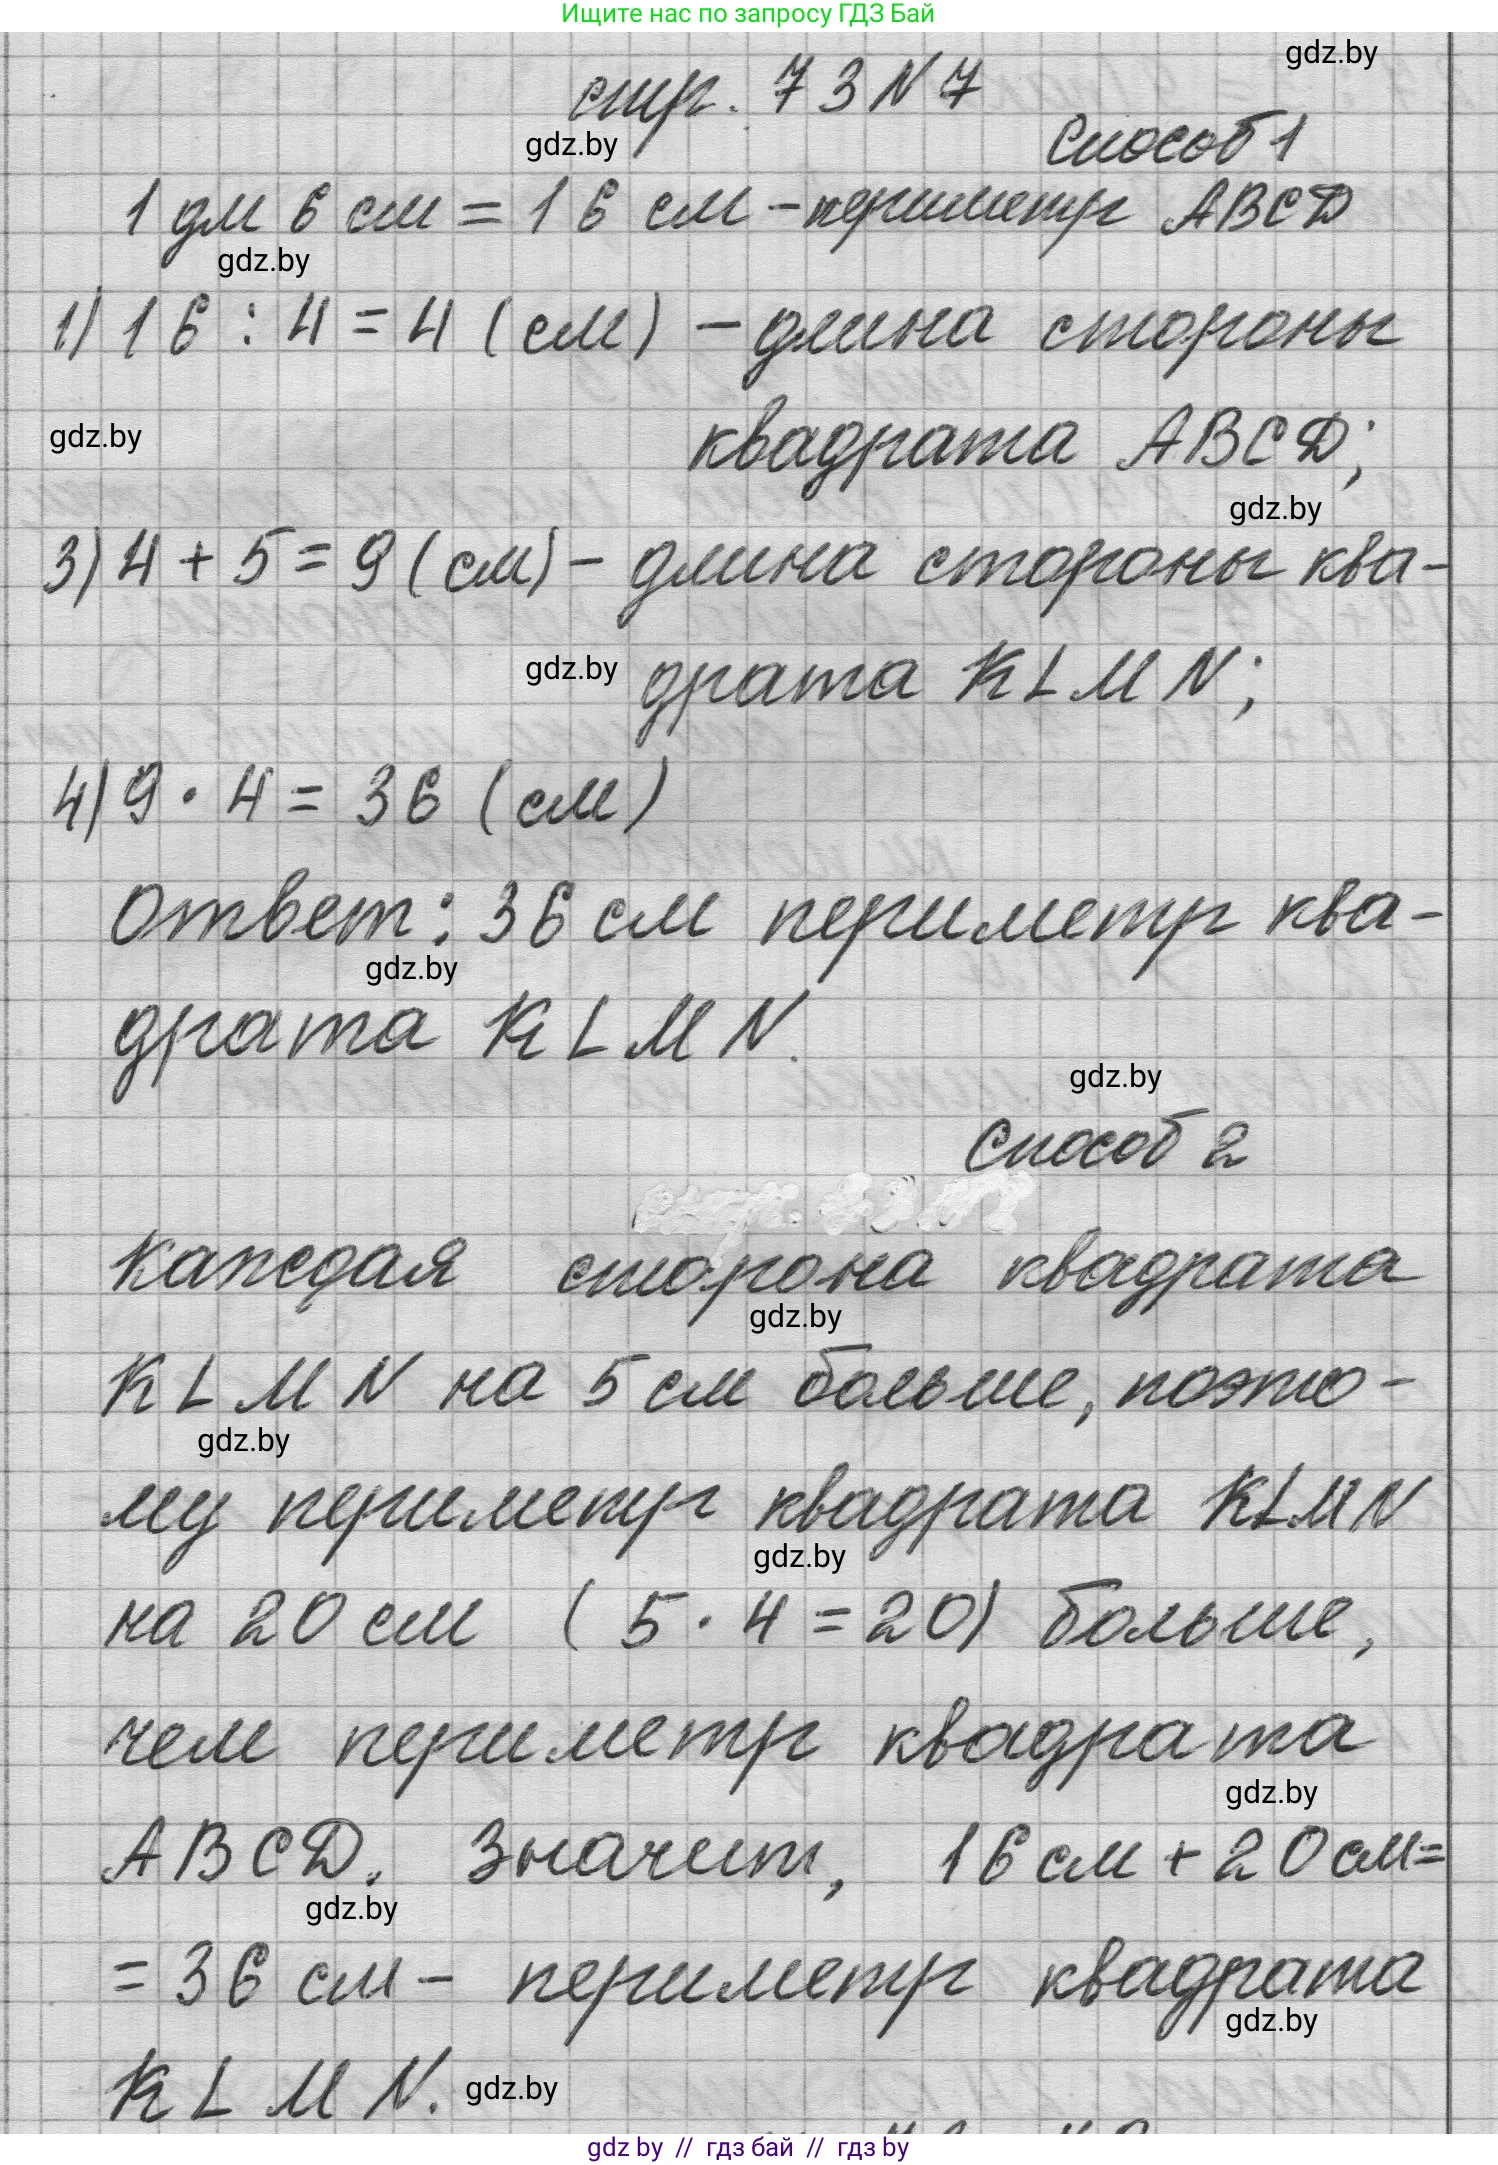 Ищите нас по запросу ГДЗ Бай
gdz.by
стр. 73 N 7
gdz.by
Способ 1
1 дм 6 см = 16 см - периметр ABCD
gdz.by
1) 16 : 4 = 4 (см) - длина стороны
gdz.by
квадрата ABCD;
gdz.by
3) 4 + 5 = 9 (см) - длина стороны ква-
gdz.by
драта KLMN;
4) 9 · 4 = 36 (см)
Ответ: 36 см периметр ква-
gdz.by
драта KLMN.
gdz.by
Способ 2
Каждая сторона квадрата
gdz.by
KLMN на 5 см больше, поэто-
gdz.by
му периметр квадрата KLMN
gdz.by
на 20 см (5 · 4 = 20) больше,
чем периметр квадрата
gdz.by
ABCD. Значит, 16 см + 20 см =
gdz.by
= 36 см - периметр квадрата
gdz.by
KLMN.
gdz.by
gdz by // гдз бай // гдз by